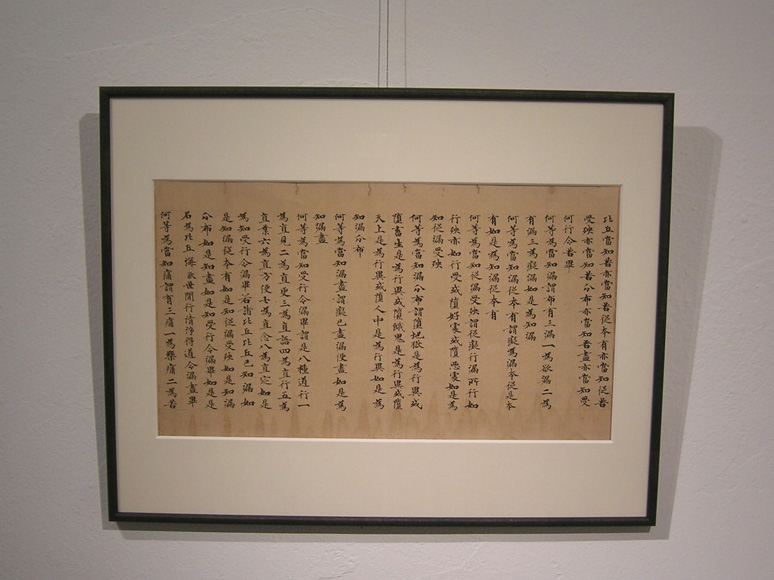 比丘當知著亦當知著從本有亦當知從著
受殃亦當知著分布亦當知著盡亦當知受
何行令著畢
何等為當知漏謂布有三漏一為欲漏二為
有漏三為癡漏如是為知漏
何等為當知漏從本有謂癡為漏本從是本
有如是為知漏從本有
何等為當知從漏受殃謂從癡行漏所行如
行殃亦如行受或墮好處或墮惡處如是為
知從漏受殃
何等為當知漏分布謂墮地獄是為行異或
墮畜生是為行異或墮餓鬼是為行異或墮
天上是為行異或墮人中是為行異如是為
知漏分布
何等為當知漏盡謂癡已盡漏便盡如是為
知漏盡
何等為當知受行令漏畢謂是八種道行一
為直見二為直更三為直語四為直行五為
直業六為直方便七為直念八為直定如是
為知受行令漏畢若諸比丘比丘已知漏如
是知漏從本有如是知從漏受殃如是知漏
分布如是知盡如是知受行令漏畢如是是
名為比丘欲世間行清淨得道令漏盡畢
何等為當知痛謂有三痛一為樂痛二為苦